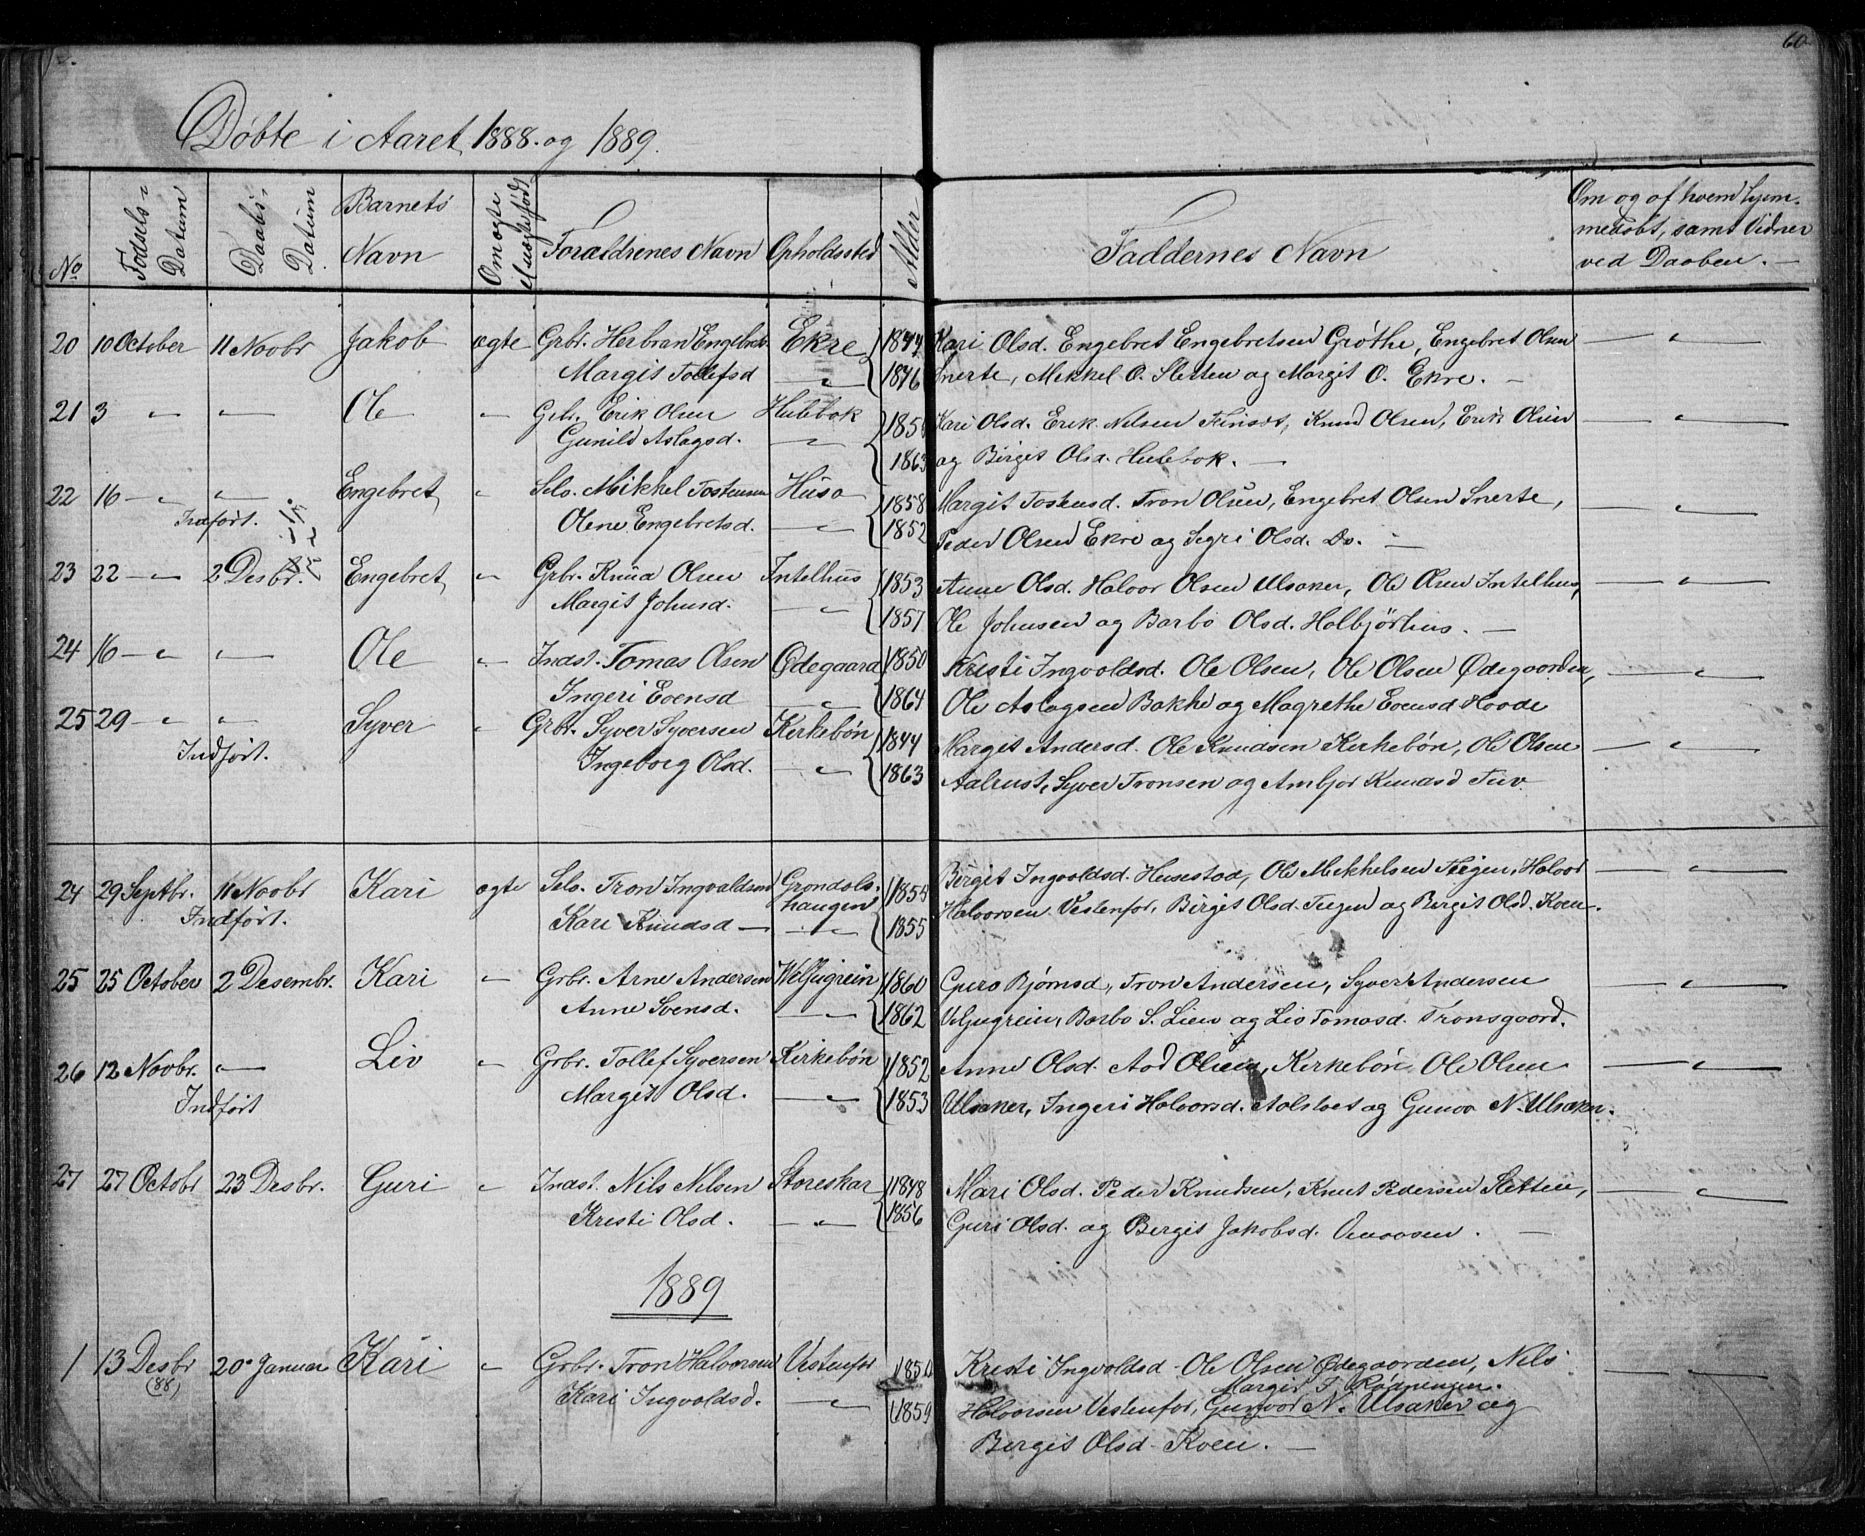 60
Døbte i Aaret 1888 og 1889.
No
Fødsels-Datum
Daabs-Datum
Barnets Navn
Om ægte el. uægte født
Forældrenes Navn
Opholdssted
Alder
Faddernes Navn
Om og af hvem hjemmedøbt, samt Vidner ved Daaben. —
20 10 October 11 Novbr Jakob ægte Grbr. Herbran Engebrets Ekre 1844 Kari Olsd. Engebret Engebretsen Grøthe, Engebret Olsen — „ —
Margit Tollefsd — „ — 1846 Snerte, Mikkel O. Sletten og Margit O. Ekre. —
21 3 — „ — — „ — Ole — „ — Grbr. Erik Olsen Hulebok 185 Kari Olsd. Erik Nilsen Finset, Knud Olsen, Erik Olsen — „ —
Gunild Aslagsd. — „ — 1863 og Birgit Olsd. Hulebok. —
22 16 — „ — — „ — Engebret „ Selv. Mikkel Tostensen Huso 1858 Margit Tostensd. Tron Olsen, Engebret Olsen Snerte, — „ —
Indført. Olene Engebretsd. — „ — 1852 Peder Olsen Ekre og Segri Olsd. Do. —
23 22 — „ — 2 Desbr. Engebret — „ — Grbr. Knud Olsen Intelhus 1853 Anne Olsd. Halvor Olsen Ulsaker, Ole Olsen Intelhus, — „ —
Margit Johnsd. — „ — 1857 Ole Johnsen og Barbo Olsd. Halbjørhus. —
24 16 — „ — — „ — Ole — „ — Indst. Tomas Olsen Ødegaard 1850 Kristi Ingvoldsd. Ole Olsen, Ole Olsen Ødegaarden, — „ —
Ingeri Evensd — „ — 1864 Ole Aslagsen Bakke og Magrethe Evensd Haade
25 29 — „ — — „ — Syver „ Grbr. Syver Syversen Kirkebøn 1844 Margit Andersd. Ole Knudsen Kirkebøn, Ole Olsen — „ —
Indført. Ingeborg Olsd. — „ — 1863 Aalrust, Syver Tronsen og Ambjor Knudsd Tuv.
24 29 Septbr. 11 Novbr Kari ægte Selv. Tron Ingvaldsen Grøndals- 1854 Birgit Ingvoldsd. Husestad, Ole Mikkelsen Teigen, Halvor — „ —
haugen
Indført. Kari Knudsd — — „ — 1855 Halvorsen Vestenfor, Birgit Olsd. Teigen og Birgit Olsd. Kven.
25 25 October 2 Desembr. Kari — „ — Grbr. Arne Andersen Veljugrein 1860 Guro Bjørnsd, Tron Andersen, Syver Andersen — „ —
Anne Svensd. — „ — 1862 Veljugrein, Barbo S. Lien og Liv Tomasd. Tronsgaard.
26 12 Novbr. — „ — Liv „ Grbr. Tollef Syversen Kirkebøn 1852 Anne Olsd. Aad Olsen, Kirkebøn Ole Olsen — „ —
Indført Margit Olsd. — „ — 1853 Ulsaker, Ingeri Halvorsd. Aalstvet og Gunvo N. Ulsaker.
27 27 Octobr 23 Desbr. Guri „ Indst. Nils Nilsen Storeskar 1848 Mari Olsd. Peder Knudsen, Knut Pedersen Sletten, — „ —
Kristi Olsd. — „ — 1856 Guri Olsd. og Bergit Jakobsd. Venaasen. —
1889
1 13 Desbr 20. Januar Kari „ Grbr. Tron Halvorsen Vestenfor 1850 Kristi Ingvoldsd. Ole Olsen Ødegaarden, Nils — „ —
(88) Margit T. Rødningen.
Kari Ingvoldsd. — „ — 1859 Halvorsen Vestenfor, Gunvor N. Ulsaker og
Bergit Olsd. Kven. —